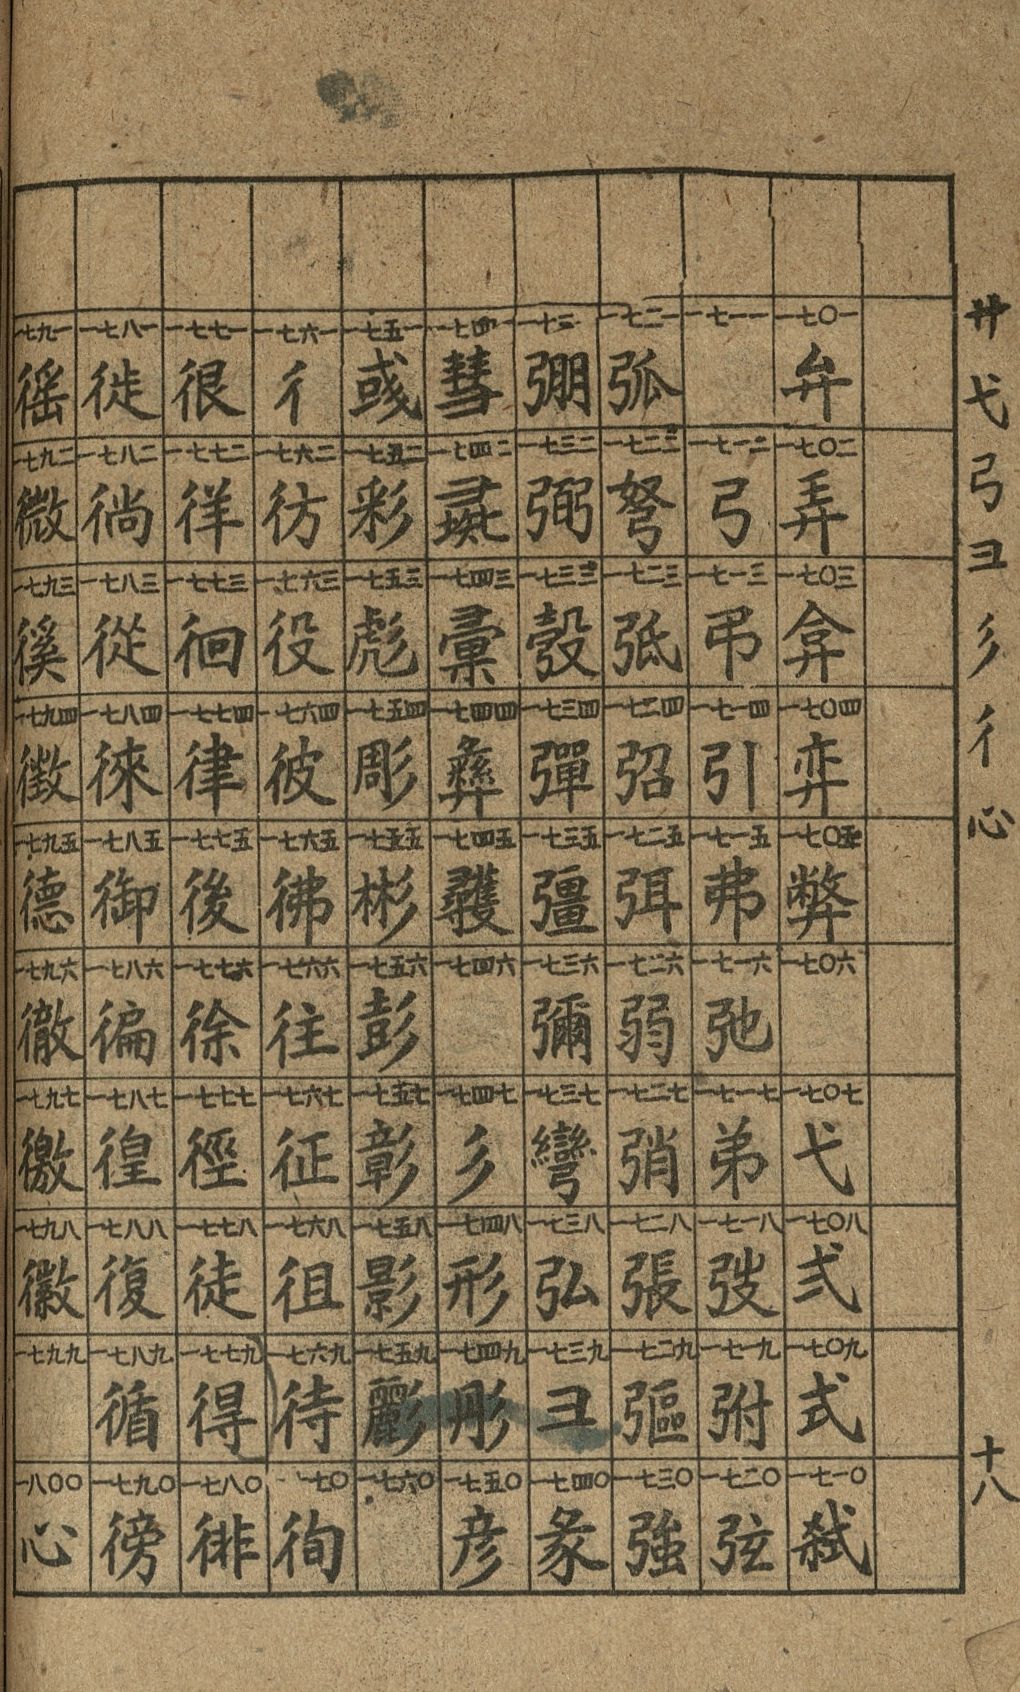 廾弋弓彐彡彳心
十八
一七〇一 弁 一七〇二 弄 一七〇三 弇 一七〇四 弈 一七〇五 弊 一七〇六 一七〇七 弋 一七〇八 弍 一七〇九 式 一七一〇 弑
一七一一 一七一二 弓 一七一三 弔 一七一四 引 一七一五 弗 一七一六 弛 一七一七 弟 一七一八 弢 一七一九 弣 一七二〇 弦
一七二一 弧 一七二二 弩 一七二三 弤 一七二四 弨 一七二五 弭 一七二六 弱 一七二七 弰 一七二八 張 一七二九 彄 一七三〇 強
弸 一七三二 弼 一七三三 彀 一七三四 彈 一七三五 彊 一七三六 彌 一七三七 彎 一七三八 弘 一七三九 彐 一七四〇 彖
一七四一 彗 一七四二 彘 一七四三 彙 一七四四 彝 一七四五 彠 一七四六 一七四七 彡 一七四八 形 一七四九 彤 一七五〇 彦
一七五一 彧 一七五二 彩 一七五三 彪 一七五四 彫 一七五五 彬 一七五六 彭 一七五七 彰 一七五八 影 一七五九 彲 一七六〇
一七六一 彳 一七六二 彷 一七六三 役 一七六四 彼 一七六五 彿 一七六六 往 一七六七 征 一七六八 徂 一七六九 待 一七〇 徇
一七七一 很 一七七二 徉 一七七三 徊 一七七四 律 一七七五 後 一七七六 徐 一七七七 徑 一七七八 徒 一七七九 得 一七八〇 徘
一七八一 徙 一七八二 徜 一七八三 從 一七八四 徠 一七八五 御 一七八六 徧 一七八七 徨 一七八八 復 一七八九 循 一七九〇 徬
一七九一 徭 一七九二 微 一七九三 徯 一七九四 徵 一七九五 德 一七九六 徹 一七九七 徼 一七九八 徽 一七九九 一八〇〇 心